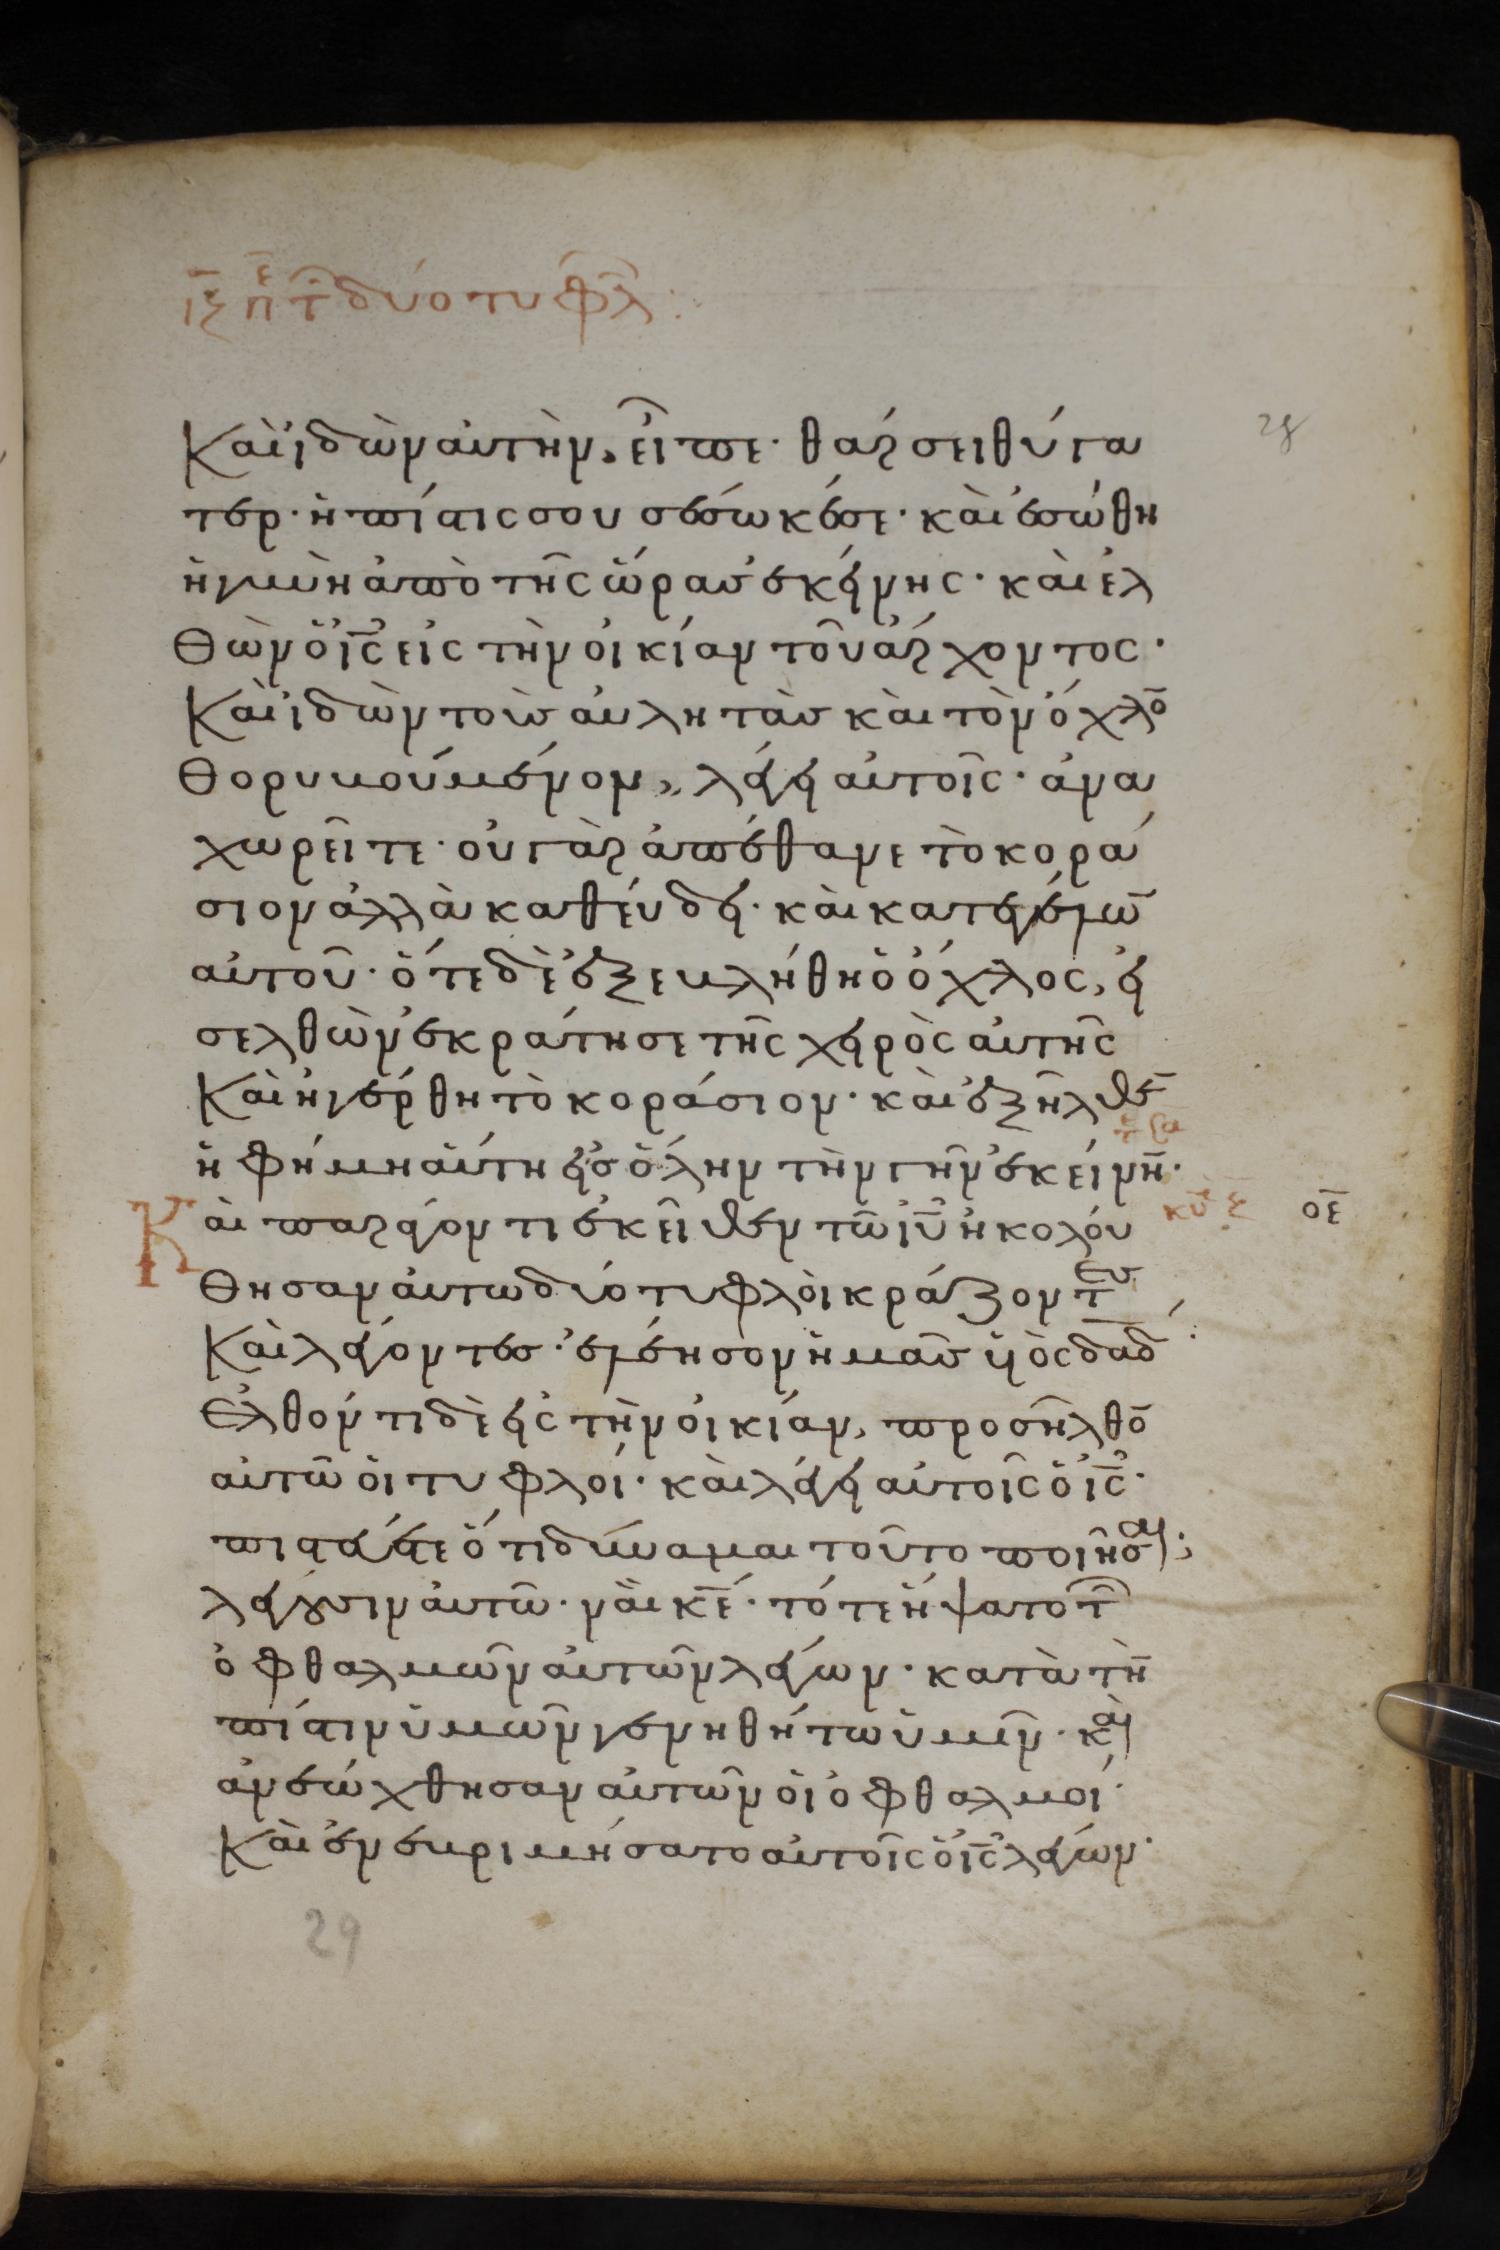 ιϛ πε τ δύο τυφλ :
28
Καὶ ἰδὼν αὐτὴν, εἶπε· θάρσει θύγα
τερ· ἡ πίστις σου σέσωκέ σε· καὶ ἐσώθη
ἡ γυνὴ ἀπὸ τῆς ὥρας ἐκείνης· καὶ ἐλ
θὼν ὁ ἰς εἰς τὴν οἰκίαν τοῦ ἄρχοντος·
Καὶ ἰδὼν τοὺς αὐλητὰς καὶ τὸν ὄχλο̄
θορυβούμενον, λέγει αὐτοῖς· ἀνα
χωρεῖτε· οὐ γὰρ ἀπέθανε τὸ κορά
σιον ἀλλὰ καθεύδει· καὶ κατεγέλω̄
αὐτοῦ· ὅτε δὲ ἐξεβλήθη ὁ ὄχλος, εἰ
σελθὼν ἐκράτησε τῆς χειρὸς αὐτῆς
Καὶ ἠγέρθη τὸ κοράσιον· καὶ ἐξῆλθε̄
ἡ φήμη αὕτη εἰς ὅλην τὴν γῆν ἐκείνη̄·
Καὶ παράγοντι ἐκεῖθεν τῶ ἰῦ ἠκολού
κυ ζ οε
θησαν αὐτῶ δύο τυφλοὶ κράζοντες
Καὶ λέγοντες· ἐλέησον ἡμᾶς υἱὸς δαδ
Ἐλθόντι δὲ εἰς τὴν οἰκίαν, προσῆλθο̄
αὐτῶ οἱ τυφλοί· καὶ λέγει αὐτοῖς ὁ ἰς·
πιστεύετε ὅτι δύναμαι τοῦτο ποιῆσαι;
λέγουσιν αὐτῶ· ναὶ κε̄· τότε ἥψατο τ̄
ὀφθαλμῶν αὐτῶν λέγων· κατὰ τὴ̄
πίστιν ὑμῶν γενηθήτω ὑμῖν· καὶ
ἀνεώχθησαν αὐτῶν οἱ ὀφθαλμοί·
Καὶ ἐνεβριμήσατο αὐτοῖς ὁ ἰς λέγων·
29